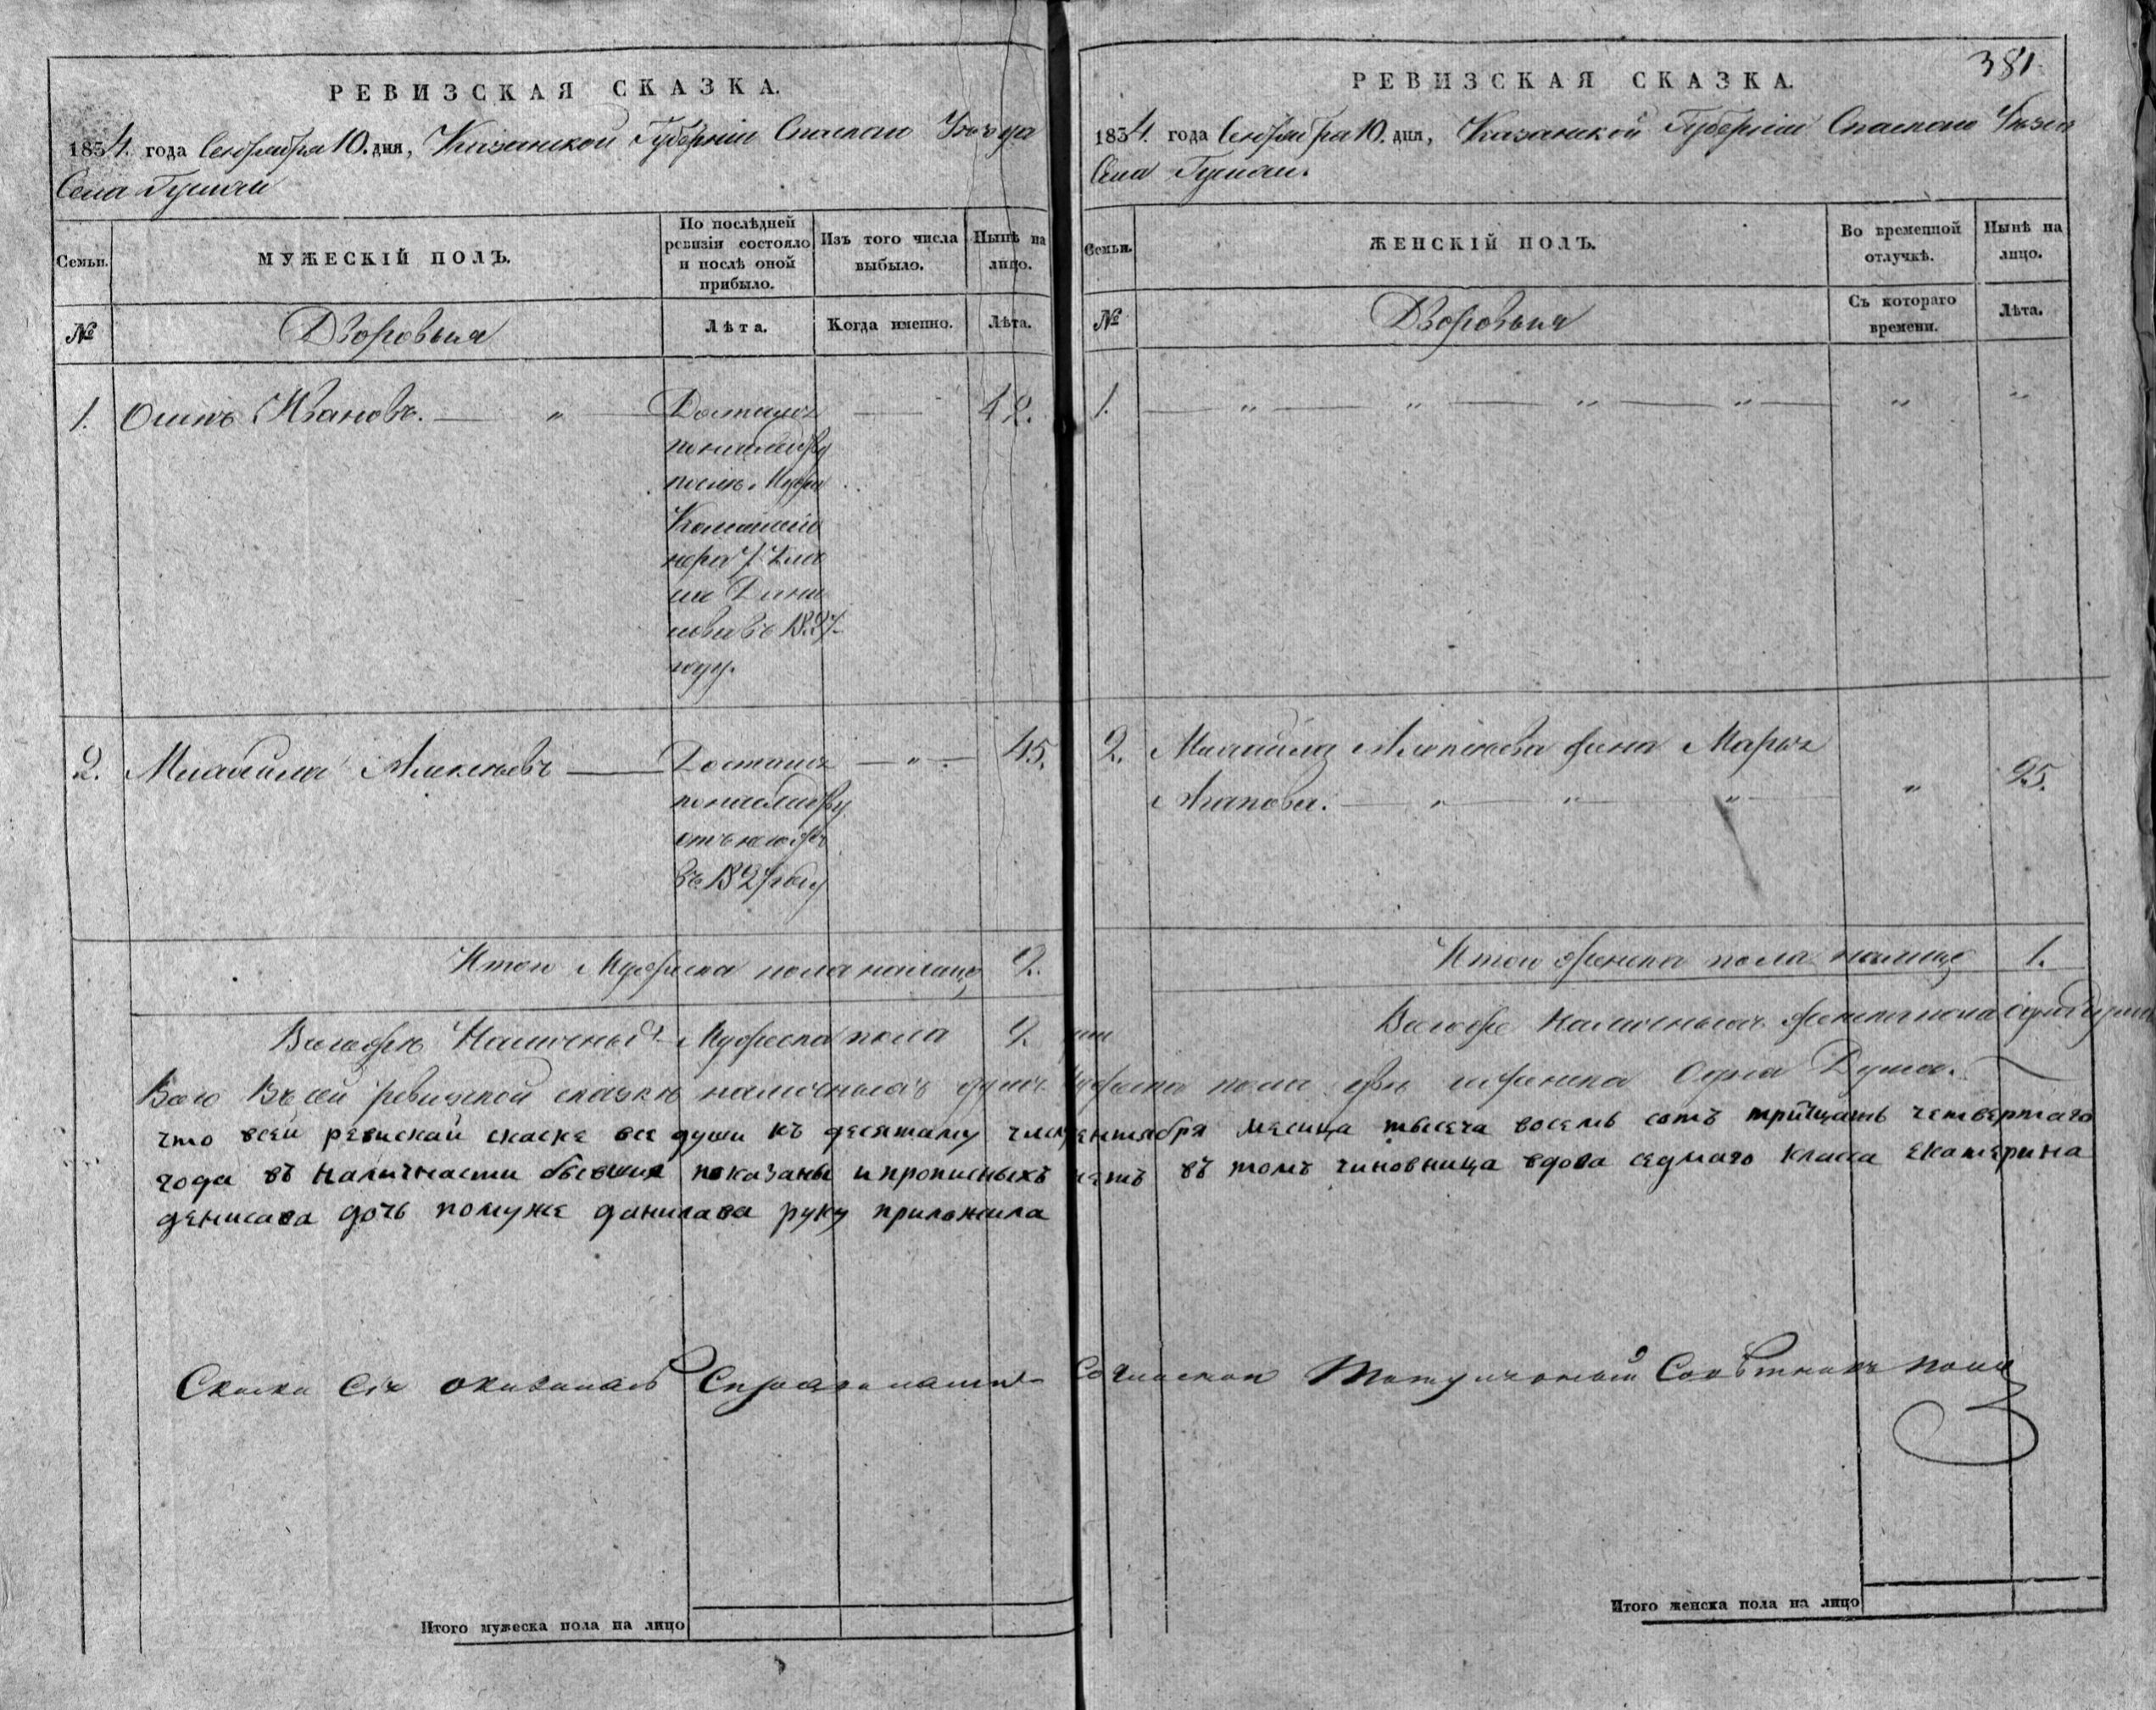 РЕВИЗСКАЯ СКАЗКА.
1834. года Сентября 10. дня, Казанской Губерніи Спаскаго Уѣзда
Села
Семьи.
МУЖЕСКІЙ ПОЛЪ.
По послѣдней ревизіи состояло и послѣ оной прибыло.
Изъ того числа выбыло.
Нынѣ на лицо.
№
Дворовыя
Лѣта.
Когда именно.
Лѣта.
1. Осипъ Ивановъ. — „ — Достался — 42.
по наслѣдству
послѣ Мужа
Комисіо
нера 7. Кла
са Дани
лова въ 1827
году.
2. Михайла — Достался — „ — 45.
по наслѣдству
отъ него же
въ 1827 году
Итого Мужеска пола налицо 2.
Мужеска пола 2.
Всего Въ сей ревизской сказкѣ наличныхъ душъ
что всей ревискай скаске все души къ десятаму числу
года въ наличнасти бывшия показаны и прописныхъ
денисава дочь помуже данилава руку приложила
Скаска Сія оказалась
Итого мужеска пола на лицо
381
РЕВИЗСКАЯ СКАЗКА.
1834. года Сентября 10. дня, Казанской Губерніи Спаскаго Уѣзда
Села
Семьи.
ЖЕНСКІЙ ПОЛЪ.
Во временной отлучкѣ.
Нынѣ на лицо.
№
Дворовыя
Съ котораго времени.
Лѣта.
1. — „ — „ — „ — „ — „ „
2. Михайла жена Марья
— „ — „ — „ — „ 25.
Итого женска пола налицо 1.
наличныхъ женска пола одна душа
Мужеска пола двѣ и женска Одна Душа.
сентября месица тысеча восемь сотъ трицать четвертаго
нетъ въ томъ чиновница вдова седмаго класса екатерина
Титулярный Совѣтникъ
Итого женска пола на лицо